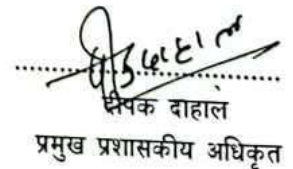 दीपक दाहाल
प्रमुख प्रशासकीय अधिकृत